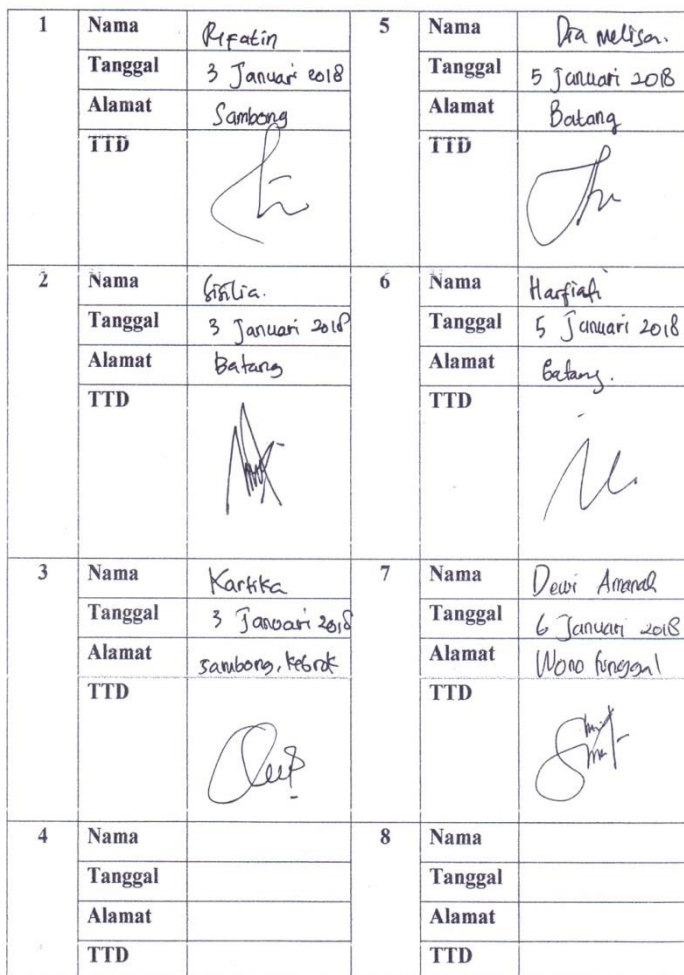 1 Nama Rifatin 5 Nama Dia Melisa.
Tanggal 3 Januari 2018 Tanggal 5 Januari 2018
Alamat Sambong Alamat Batang
TTD TTD
2 Nama Sisilia. 6 Nama Harfiati
Tanggal 3 Januari 2018 Tanggal 5 Januari 2018
Alamat Batang Alamat Batang.
TTD TTD
3 Nama Kartika 7 Nama Dewi Amanah
Tanggal 3 Januari 2018 Tanggal 6 Januari 2018
Alamat Sambong, Kebrok Alamat Wono tunggal
TTD TTD
4 Nama 8 Nama
Tanggal Tanggal
Alamat Alamat
TTD TTD